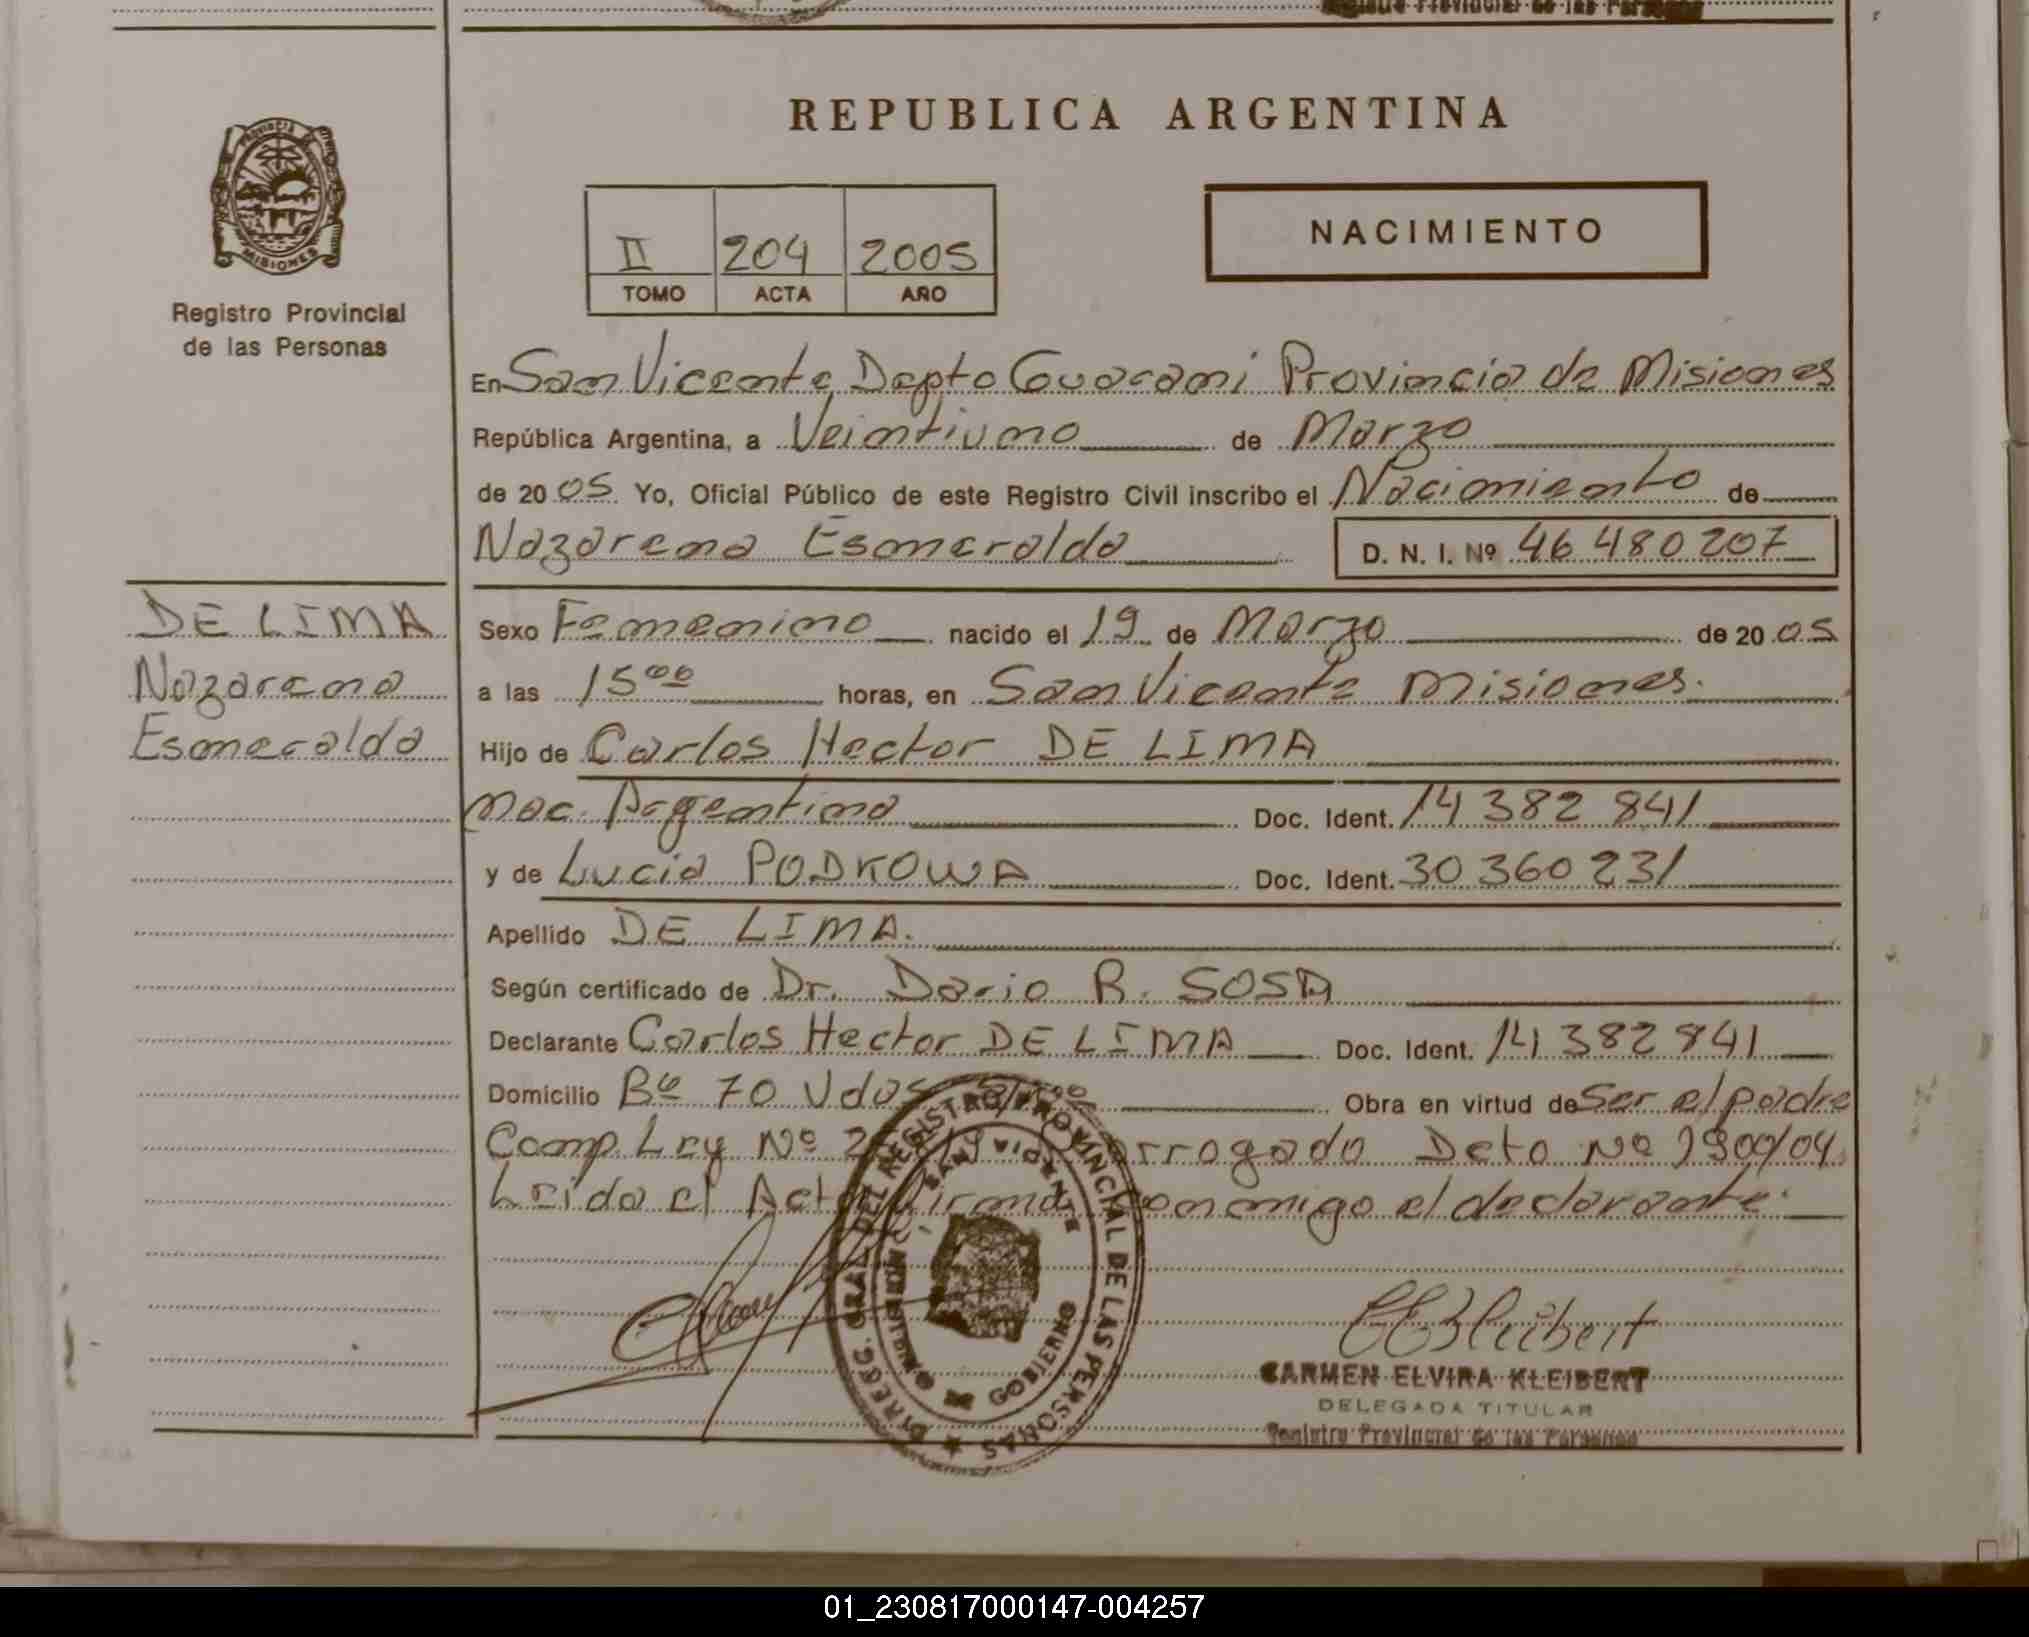 Registro Provincial de las Personas
REPUBLICA ARGENTINA
PROVINCIA DE
MISIONES
Registro Provincial
de las Personas
II 204 2005
TOMO ACTA AÑO
NACIMIENTO
En San Vicente Depto Guarani Provincia de Misiones
República Argentina, a Veintiuno de Marzo
de 20 05 Yo, Oficial Público de este Registro Civil inscribo el Nacimiento de
Nazarena Esmeralda D. N. I. Nº 46 480 207
DE LIMA
Nazarena
Esmeralda
Sexo Femenino nacido el 19 de Marzo de 20 05
a las 15 00 horas, en San Vicente Misiones.
Hijo de Carlos Hector DE LIMA
nac. Argentina Doc. Ident. 14 382 841
y de Lucia PODKOWA Doc. Ident. 30 360 231
Apellido DE LIMA.
Según certificado de Dr. Dario R. SOSA
Declarante Carlos Hector DE LIMA Doc. Ident. 14 382 841
Domicilio Bº 70 Vdas Obra en virtud de Ser el padre
Comp. Ley Nº Dcto Nº 1900/04.
Leido el Acta firma conmigo el declarante.
DIREC. GRAL. DEL REGISTRO PROVINCIAL DE LAS PERSONAS
SAN VICENTE
MINISTERIO DE GOBIERNO
CEKleibert
CARMEN ELVIRA KLEIBERT
DELEGADA TITULAR
Registro Provincial de las Personas
01_230817000147-004257